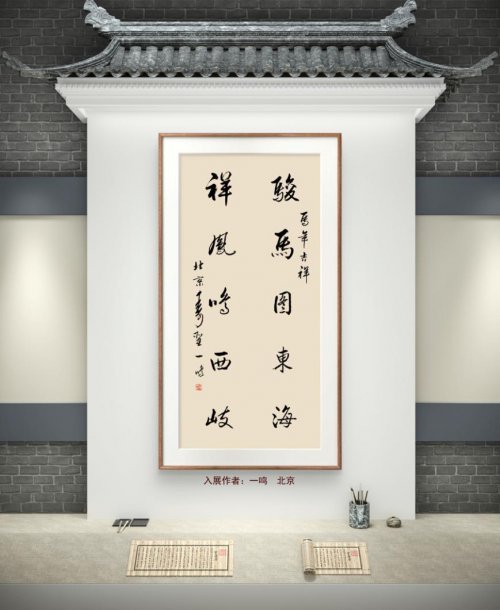 駿馬圖東海
馬年吉祥
祥鳳鳴西岐
北京
一鳴
入展作者：一鸣 北京